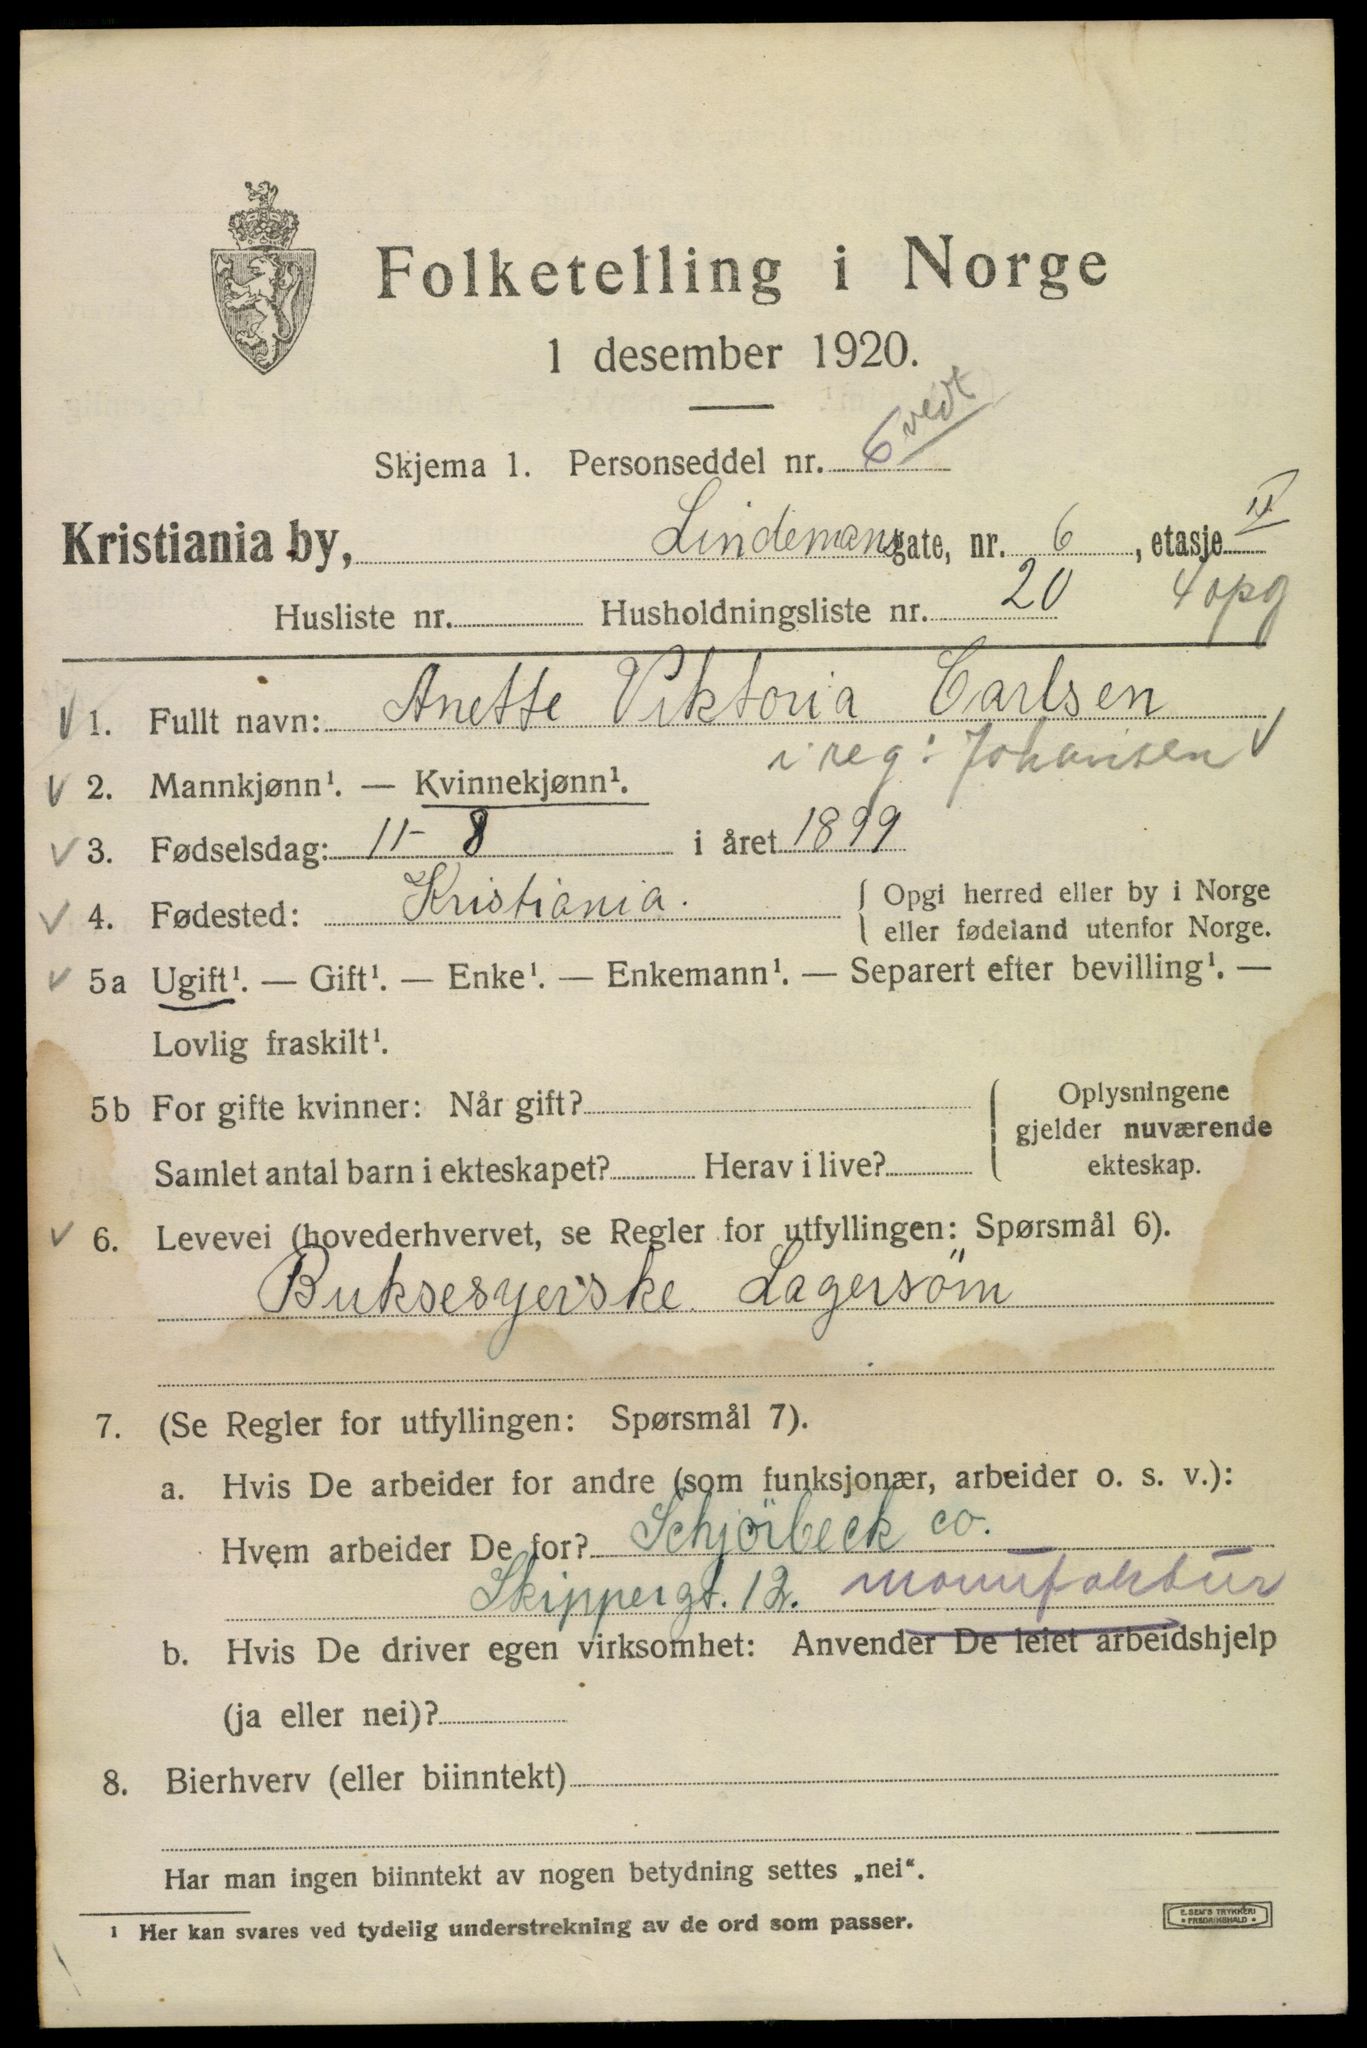 Folketelling i Norge
1 desember 1920.
Skjema 1. Personseddel nr. 6 vedt
Kristiania by, Lindemansgate, nr. 6, etasje II
Husliste nr. Husholdningsliste nr. 20 4 opg
1. Fullt navn: Anette Viktoria Carlsen
i reg: Johansen
2. Mannkjønn¹. — Kvinnekjønn¹.
3. Fødselsdag: 11 - 8 i året 1899
4. Fødested: Kristiania. { Opgi herred eller by i Norge
eller fødeland utenfor Norge.
5a Ugift¹. — Gift¹. — Enke¹. — Enkemann¹. — Separert efter bevilling¹. —
Lovlig fraskilt¹.
5b For gifte kvinner: Når gift? { Oplysningene
gjelder nuværende
Samlet antal barn i ekteskapet? Herav i live? ekteskap.
6. Levevei (hovederhvervet, se Regler for utfyllingen: Spørsmål 6).
Buksesyerske Lagersöm
7. (Se Regler for utfyllingen: Spørsmål 7).
a. Hvis De arbeider for andre (som funksjonær, arbeider o. s. v.):
Hvem arbeider De for? Schjörbeck co.
Skippergt. 12. manufaktur
b. Hvis De driver egen virksomhet: Anvender De leiet arbeidshjelp
(ja eller nei)?
8. Bierhverv (eller biinntekt)
Har man ingen biinntekt av nogen betydning settes „nei“.
¹ Her kan svares ved tydelig understrekning av de ord som passer.
E. SEM'S TRYKKERI
* FREDRIKSHALD *